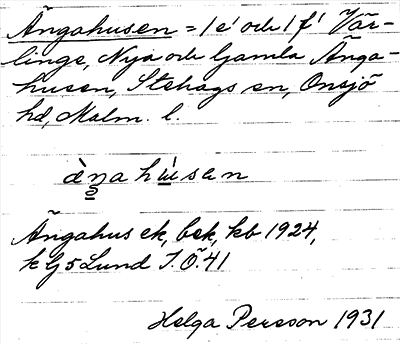 Ängahusen = 1 e' och 1 f' Vär-
linge, Nya och Gamla Änga-
husen, Stehags sn, Onsjö
hd, Malm. l.
Ängahus ek, bek, kb 1924,
k G 5 Lund S. Ö. 41
Helga Persson 1931